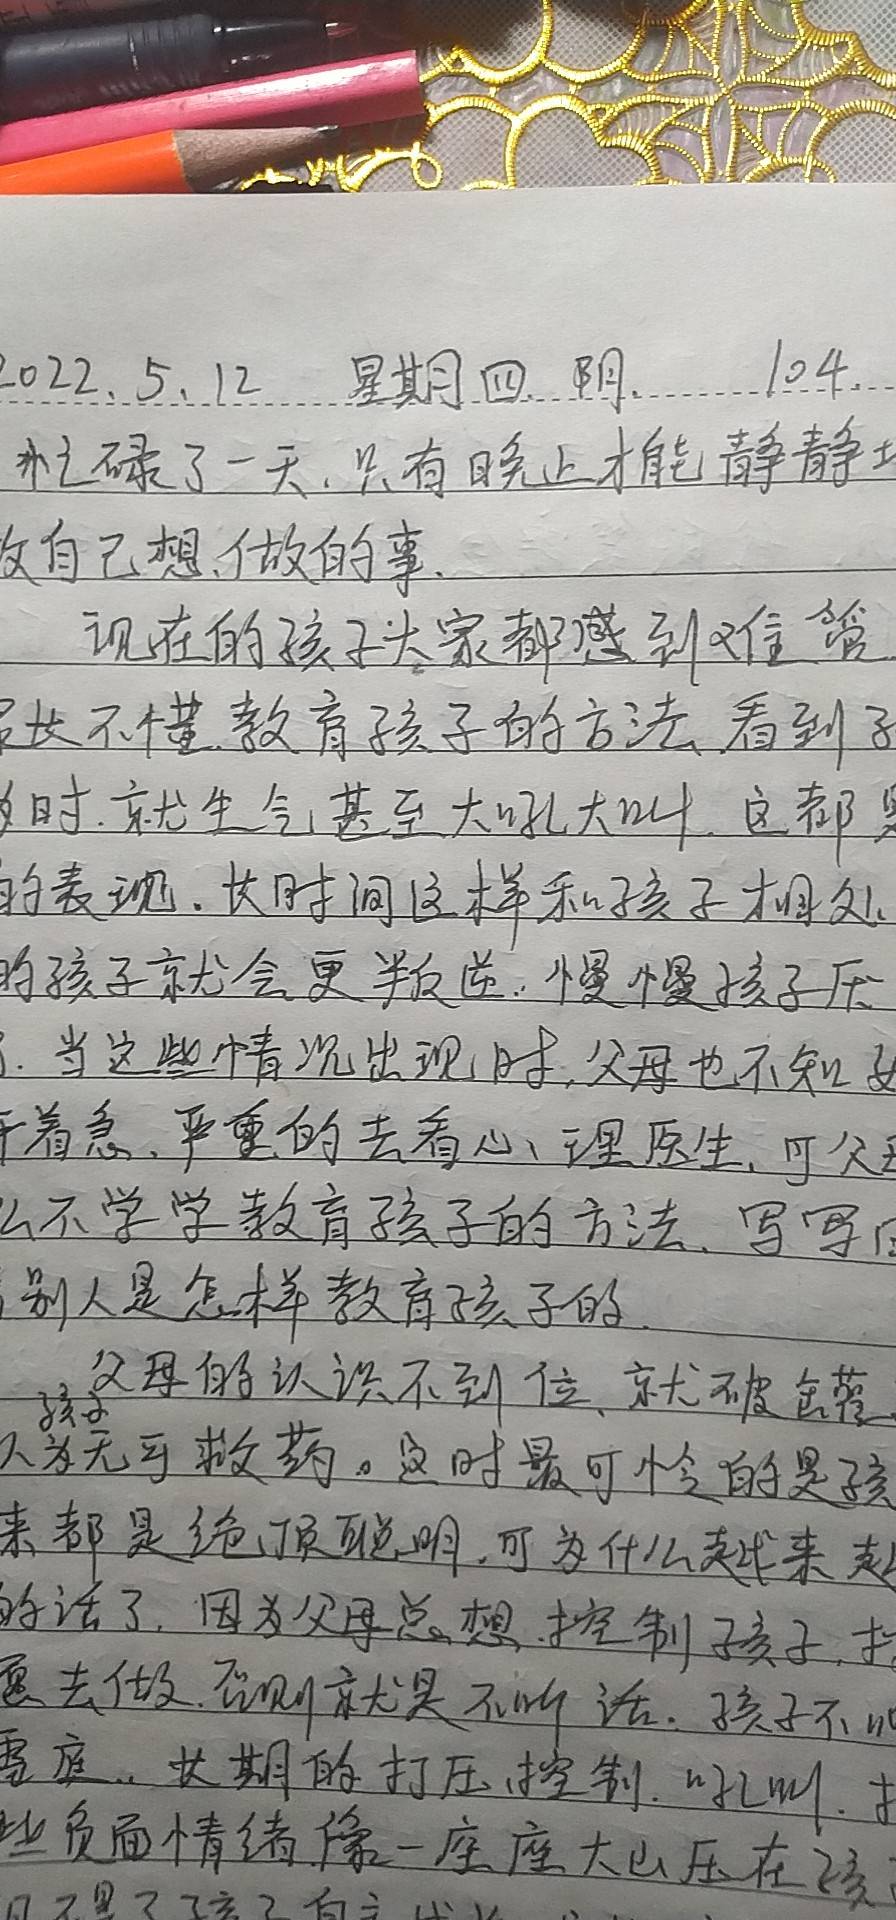 2022.5.12 星期四.阴. 104.
忙碌了一天.只有晚上才能静静地
做自己想做的事.
现在的孩子大家都感到难管
家长不懂教育孩子的方法.看到
时.就生气甚至大吼大叫.这都是
的表现.长时间这样和孩子相处.
的孩子就会更叛逆.慢慢孩子压
了.当这些情况出现时,父母也不知
着急.严重的去看心理医生.可父母
么不学学教育孩子的方法.写写
别人是怎样教育孩子的.
父母的认识不到位.就破缶罐
孩子
认为无可救药。这时最可怜的是孩
来都是绝顶聪明.可为什么越来越
的话了.因为父母总想控制孩子.按
愿去做.否则就是不听话.孩子不听
雷庭..长期的打压.控制.吼叫.
些负面情绪像一座座大山压在孩